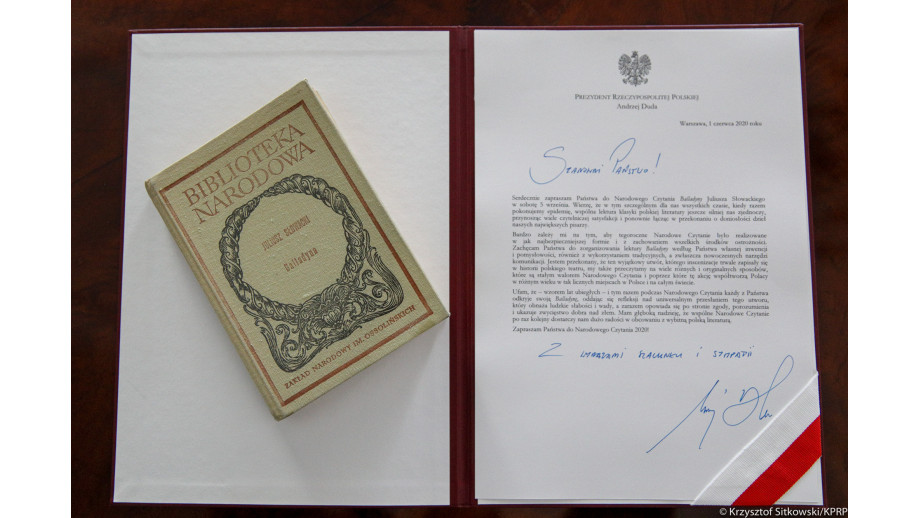 BIBLIOTEKA
NARODOWA
JULIUSZ SŁOWACKI
Balladyna
ZAKŁAD NARODOWY IM. OSSOLIŃSKICH
PREZYDENT RZECZYPOSPOLITEJ POLSKIEJ
Andrzej Duda
Warszawa, 1 czerwca 2020 roku
Szanowni Państwo!
Serdecznie zapraszam Państwa do Narodowego Czytania Balladyny Juliusza Słowackiego
w sobotę 5 września. Wierzę, że w tym szczególnym dla nas wszystkich czasie, kiedy razem
pokonujemy epidemię, wspólna lektura klasyki polskiej literatury jeszcze silniej nas zjednoczy,
przynosząc wiele czytelniczej satysfakcji i ponownie łącząc w przekonaniu o doniosłości dzieł
naszych największych pisarzy.
Bardzo zależy mi na tym, aby tegoroczne Narodowe Czytanie było realizowane
w jak najbezpieczniejszej formie i z zachowaniem wszelkich środków ostrożności.
Zachęcam Państwa do zorganizowania lektury Balladyny według Państwa własnej inwencji
i pomysłowości, również z wykorzystaniem tradycyjnych, a zwłaszcza nowoczesnych narzędzi
komunikacji. Jestem przekonany, że ten wyjątkowy utwór, którego inscenizacje trwale zapisały się
w historii polskiego teatru, my także przeczytamy na wiele różnych i oryginalnych sposobów,
które są stałym walorem Narodowego Czytania i poprzez które tę akcję współtworzą Polacy
w różnym wieku w tak licznych miejscach w Polsce i na całym świecie.
Ufam, że – wzorem lat ubiegłych – i tym razem podczas Narodowego Czytania każdy z Państwa
odkryje swoją Balladynę, oddając się refleksji nad uniwersalnym przesłaniem tego utworu,
który obnaża ludzkie słabości i wady, a zarazem opowiada się po stronie zgody, porozumienia
i ukazuje zwycięstwo dobra nad złem. Mam głęboką nadzieję, że wspólne Narodowe Czytanie
po raz kolejny dostarczy nam dużo radości w obcowaniu z wybitną polską literaturą.
Zapraszam Państwa do Narodowego Czytania 2020!
Z wyrazami szacunku i sympatii
© Krzysztof Sitkowski/KPRP